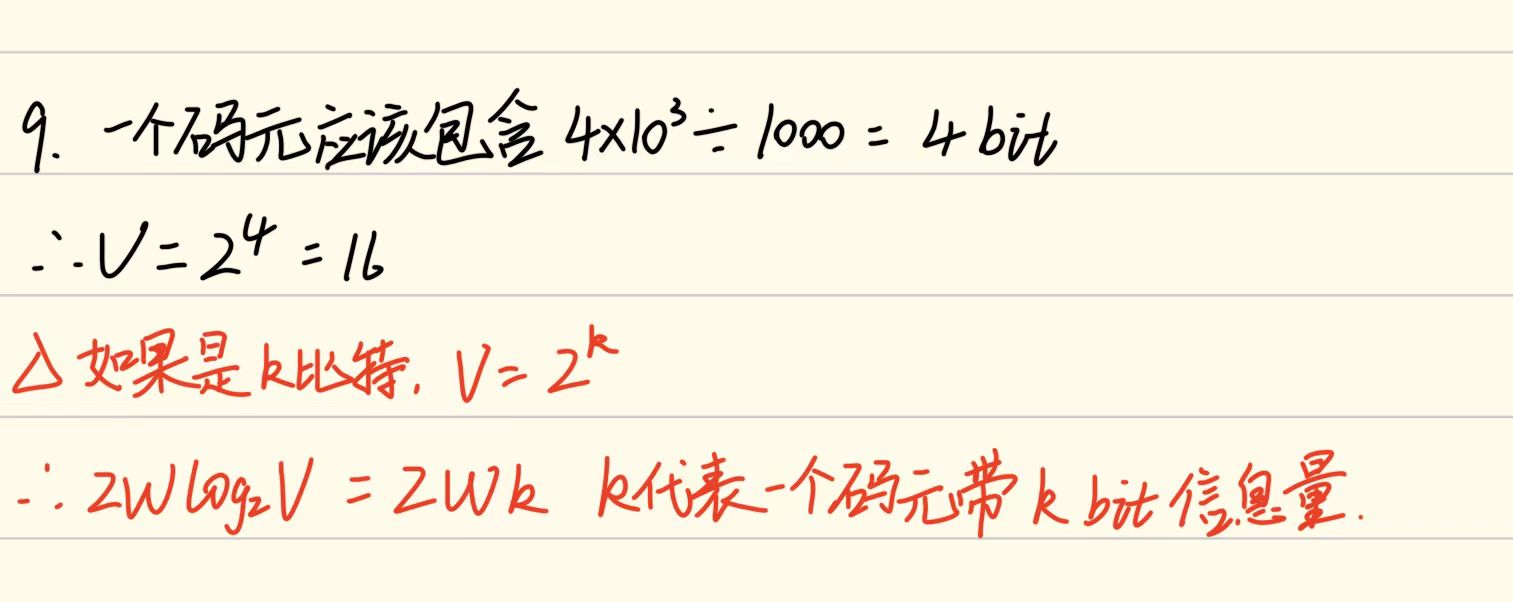 9. 一个码元应该包含 4×10³÷1000 = 4 bit
∴V=2⁴=16
△如果是k比特, V=2ᵏ
∴2Wlog₂V = 2Wk k代表一个码元带k bit信息量.